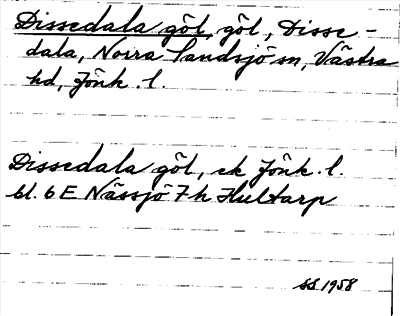 Dissedala göl, göl, Disse-
dala, Norra Sandsjö sn, Västra
hd, Jönk. l.
Dissedala göl, ek Jönk. l.
bl. 6 E Nässjö 7 h Hultarp
SS 1958